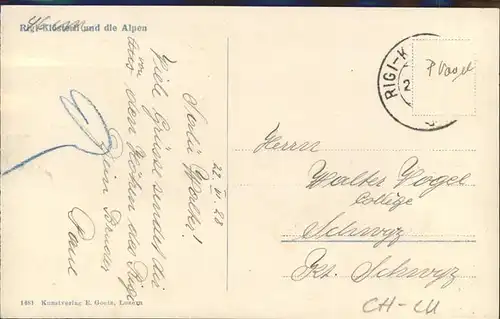 Rigi-Klösterli und die Alpen
22. V. 28
Salü Walter!
Viele Grüsse sendet dir
von den Höhen des Rigi
Dein Bruder
Paul
RIGI-K
P Vogel
Herrn
Walter Vogel
College
Schwyz
Kt. Schwyz
CH-LU
Kunstverlag E. Goetz, Luzern